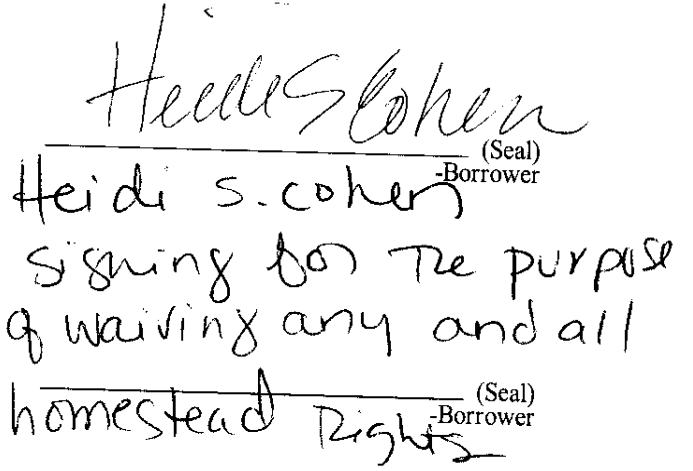 Heidi S Cohen
(Seal)
-Borrower
Heidi S. Cohen
signing for the purpose
of waiving any and all
(Seal)
homestead Rights -Borrower